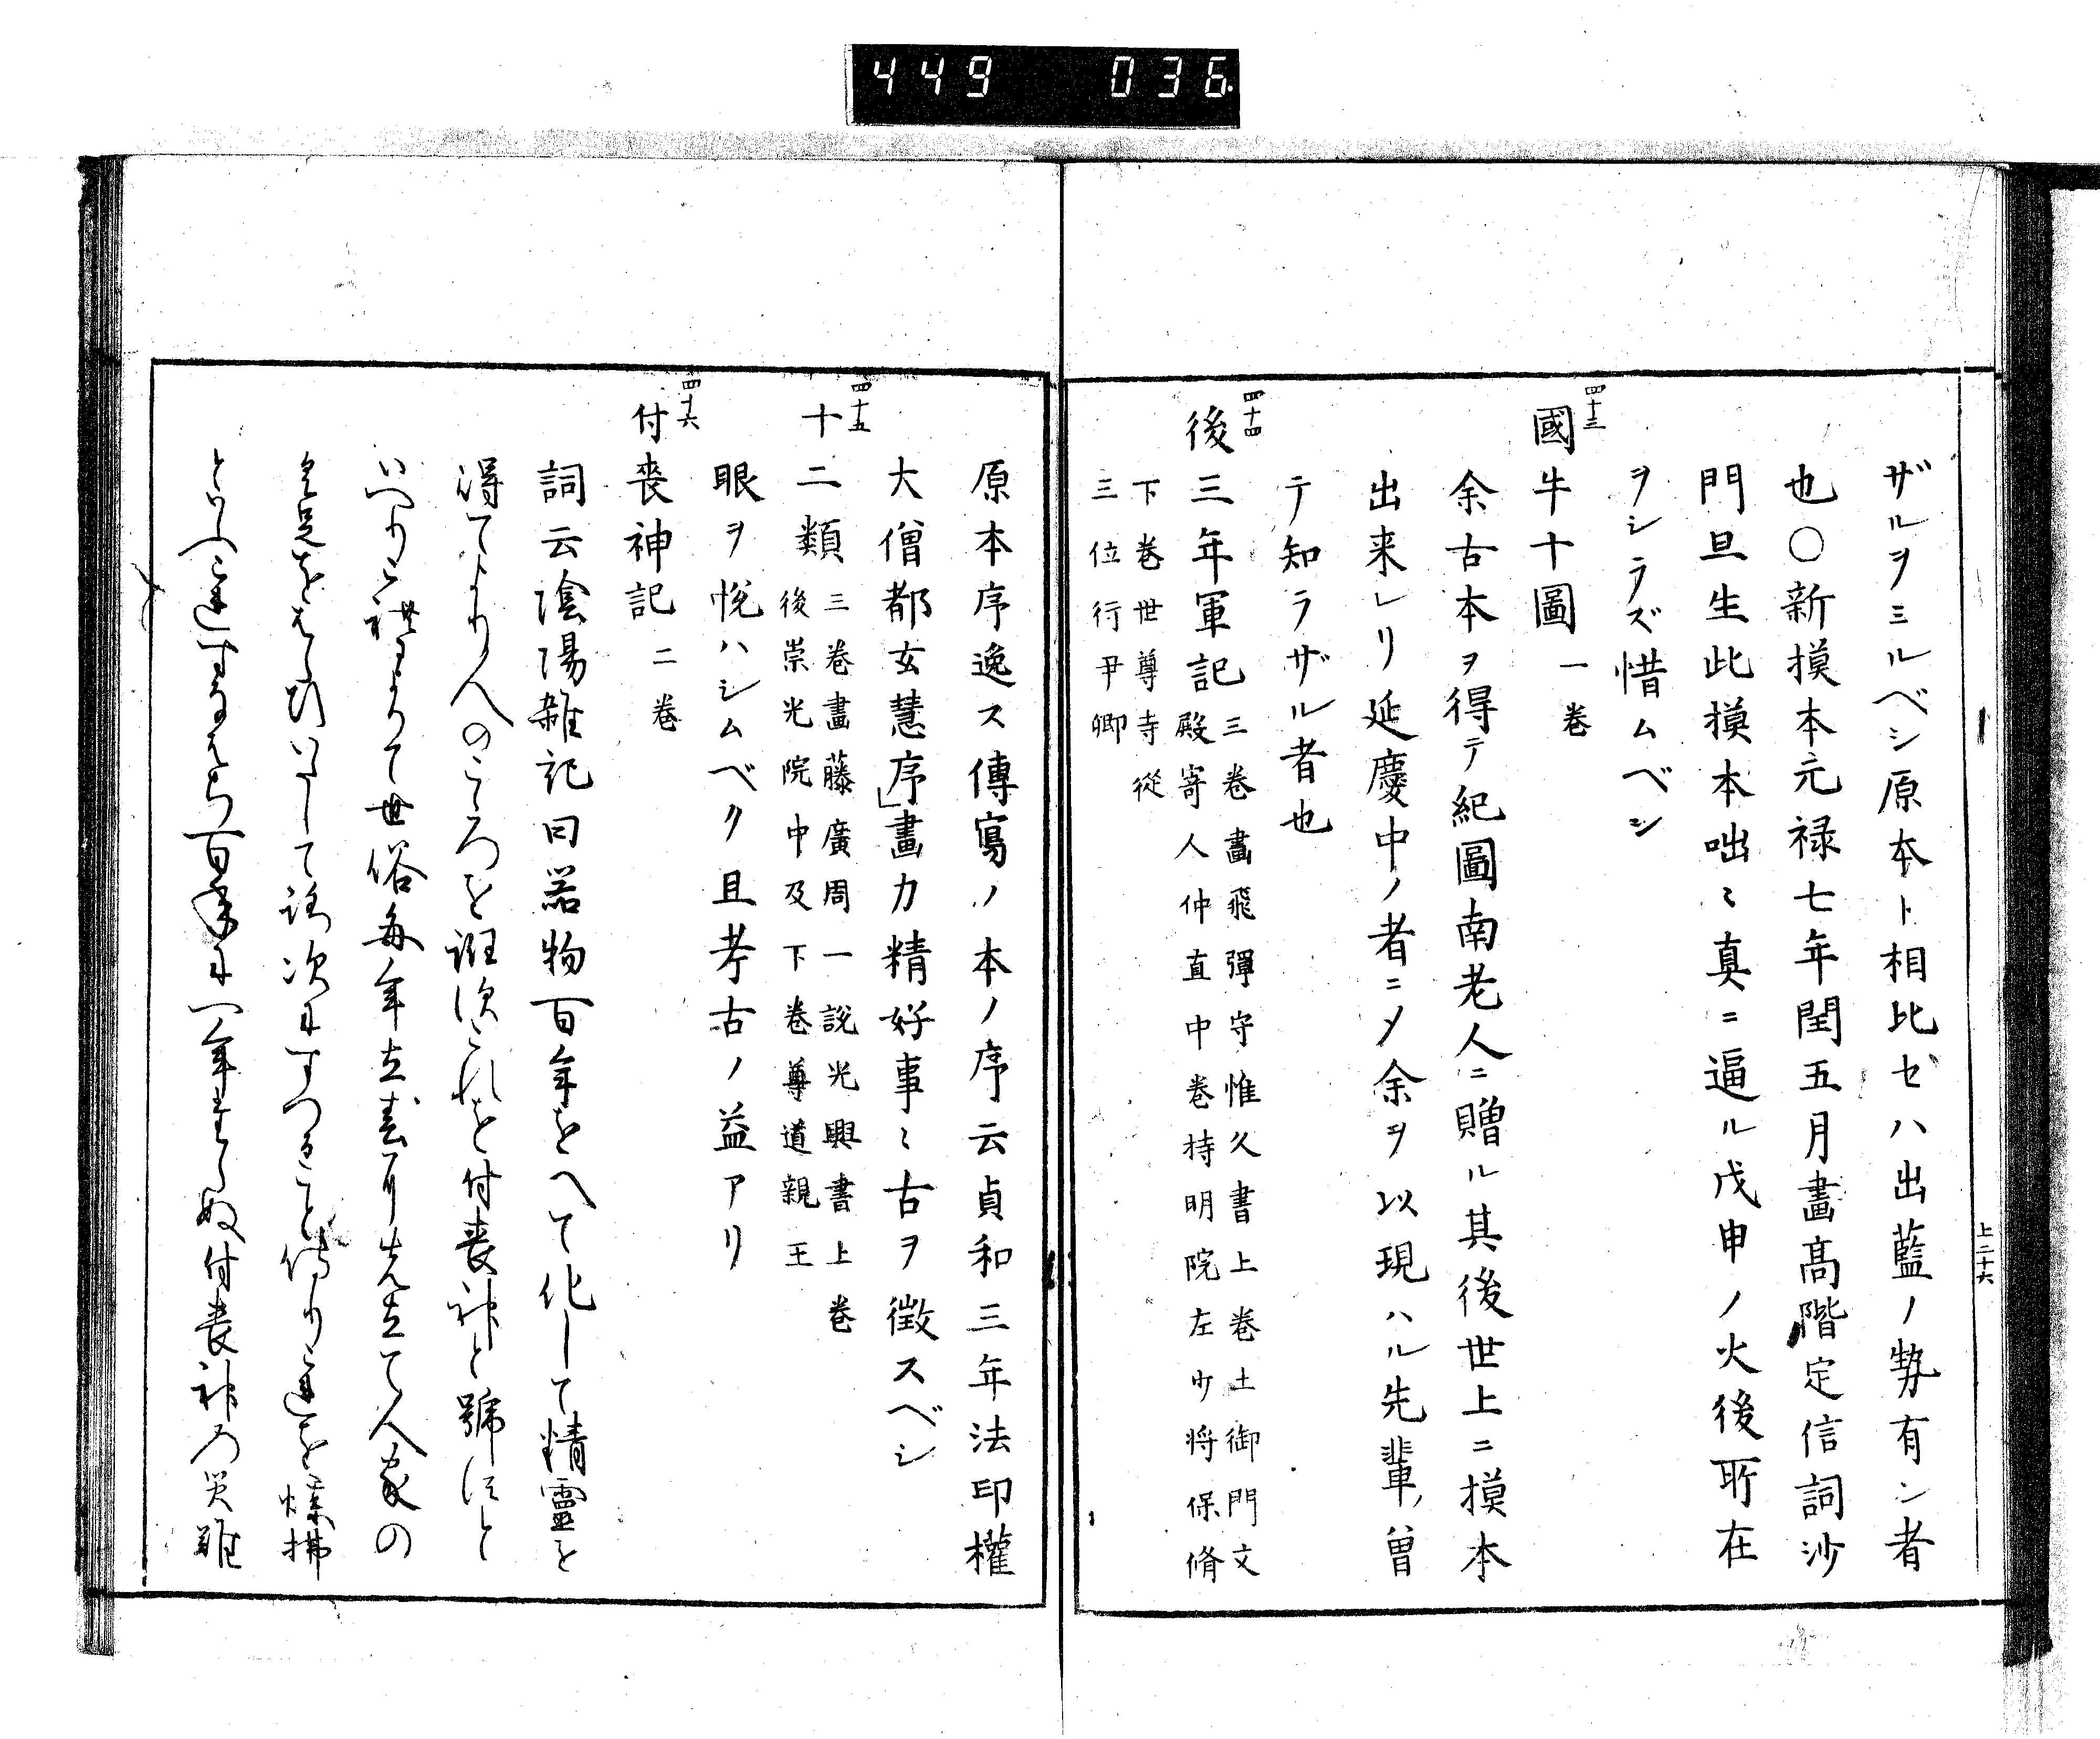 449 036
上二十六
ザルヲミルベシ原本ト相比セハ出藍ノ勢有ン者
也○新摸本元禄七年閏五月畫高階定信詞沙
門旦生此摸本咄〻真ニ逼ル戊申ノ火後所在
ヲシラズ惜ムベシ
四十三
國牛十圖 一巻
余古本ヲ得テ紀圖南老人ニ贈ル其後世上ニ摸本
出来レリ延慶中ノ者ニメ余ヲ以現ハル先輩曽
テ知ラザル者也
四十四
後三年軍記
三巻畫飛彈守惟久書上巻土御門文
殿寄人仲直中巻持明院左少将保脩
下巻世尊寺從
三位行尹卿
原本序逸ス傳寫ノ本ノ序云貞和三年法印權
大僧都玄慧序」畫力精好事〻古ヲ徴スベシ
四十五
十二類
三巻畫藤廣周一説光興書上巻
後崇光院中及下巻尊道親王
眼ヲ悦ハシムベク且考古ノ益アリ
四十六
付喪神記 二巻
詞云陰陽雑記曰器物百年をへて化して精靈を
得てより人のこゝろを誑すこれを付喪神と號すと
いへり是によりて世俗毎年立春に先立て人家の
具足をはらひいたして路次にすつること侍り煤拂
といへり是すなはち百年に一年たらぬ付喪神の災難